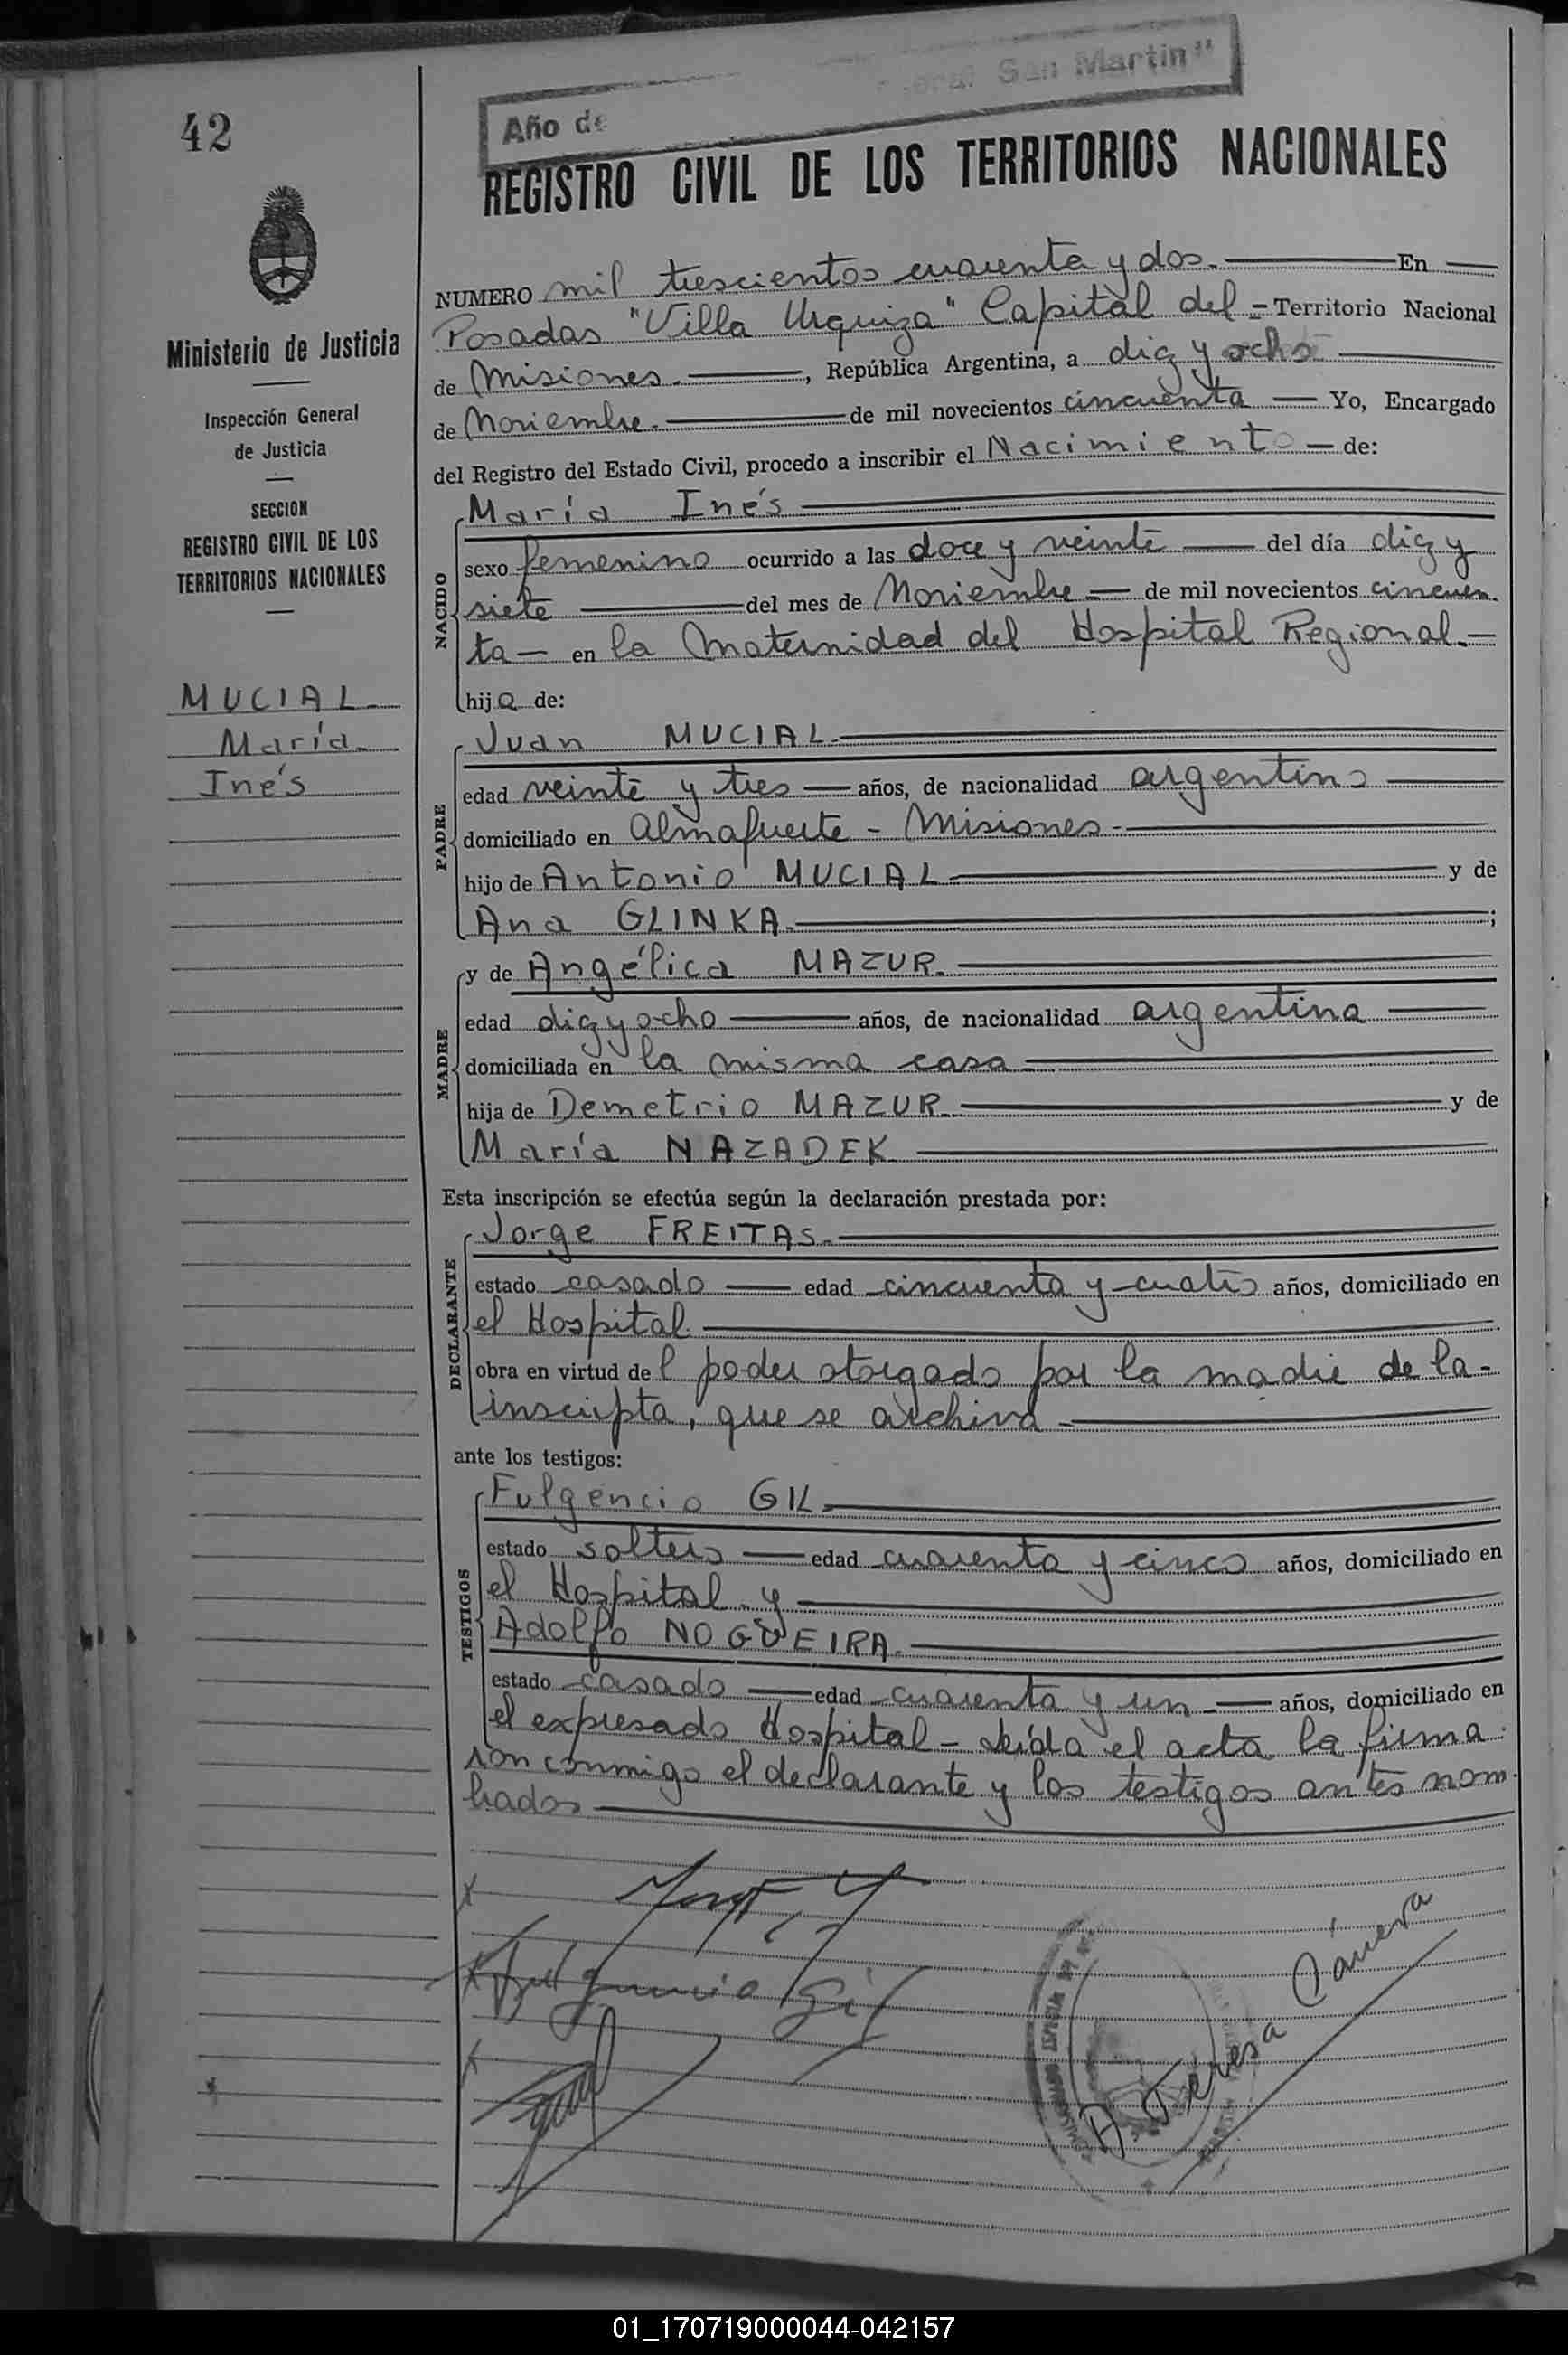 Año de
eral San Martín"
42
REGISTRO CIVIL DE LOS TERRITORIOS NACIONALES
Ministerio de Justicia
Inspección General
de Justicia
SECCION
REGISTRO CIVIL DE LOS
TERRITORIOS NACIONALES
MUCIAL
María
Inés
NUMERO mil trescientos cuarenta y dos. En
Posadas "Villa Urquiza" Capital del - Territorio Nacional
de Misiones. , República Argentina, a diez y ocho
de Noviembre. de mil novecientos cincuenta Yo, Encargado
del Registro del Estado Civil, procedo a inscribir el Nacimiento - de:
NACIDO
María Inés
sexo femenino ocurrido a las doce y veinte del día diez y
siete del mes de Noviembre de mil novecientos cincuen-
ta - en la Maternidad del Hospital Regional. -
hija de:
PADRE
Juan MUCIAL.
edad veinte y tres años, de nacionalidad argentino
domiciliado en Almafuerte - Misiones -
hijo de Antonio MUCIAL y de
Ana GLINKA. ;
MADRE
y de Angélica MAZUR.
edad diez y ocho años, de nacionalidad argentina
domiciliada en la misma casa
hija de Demetrio MAZUR y de
María NAZADEK
Esta inscripción se efectúa según la declaración prestada por:
DECLARANTE
Jorge FREITAS.
estado casado edad cincuenta y cuatro años, domiciliado en
el Hospital.
obra en virtud del poder otorgado por la madre de la -
inscripta, que se archiva
ante los testigos:
TESTIGOS
Fulgencio GIL
estado soltero edad cuarenta y cinco años, domiciliado en
el Hospital y
Adolfo NOGÜEIRA.
estado casado edad cuarenta y un años, domiciliado en
el expresado Hospital - Leída el acta la firma-
ron conmigo el declarante y los testigos antes nom-
brados
Fulgencio Gil
A. Teresa Cánera
01_170719000044-042157